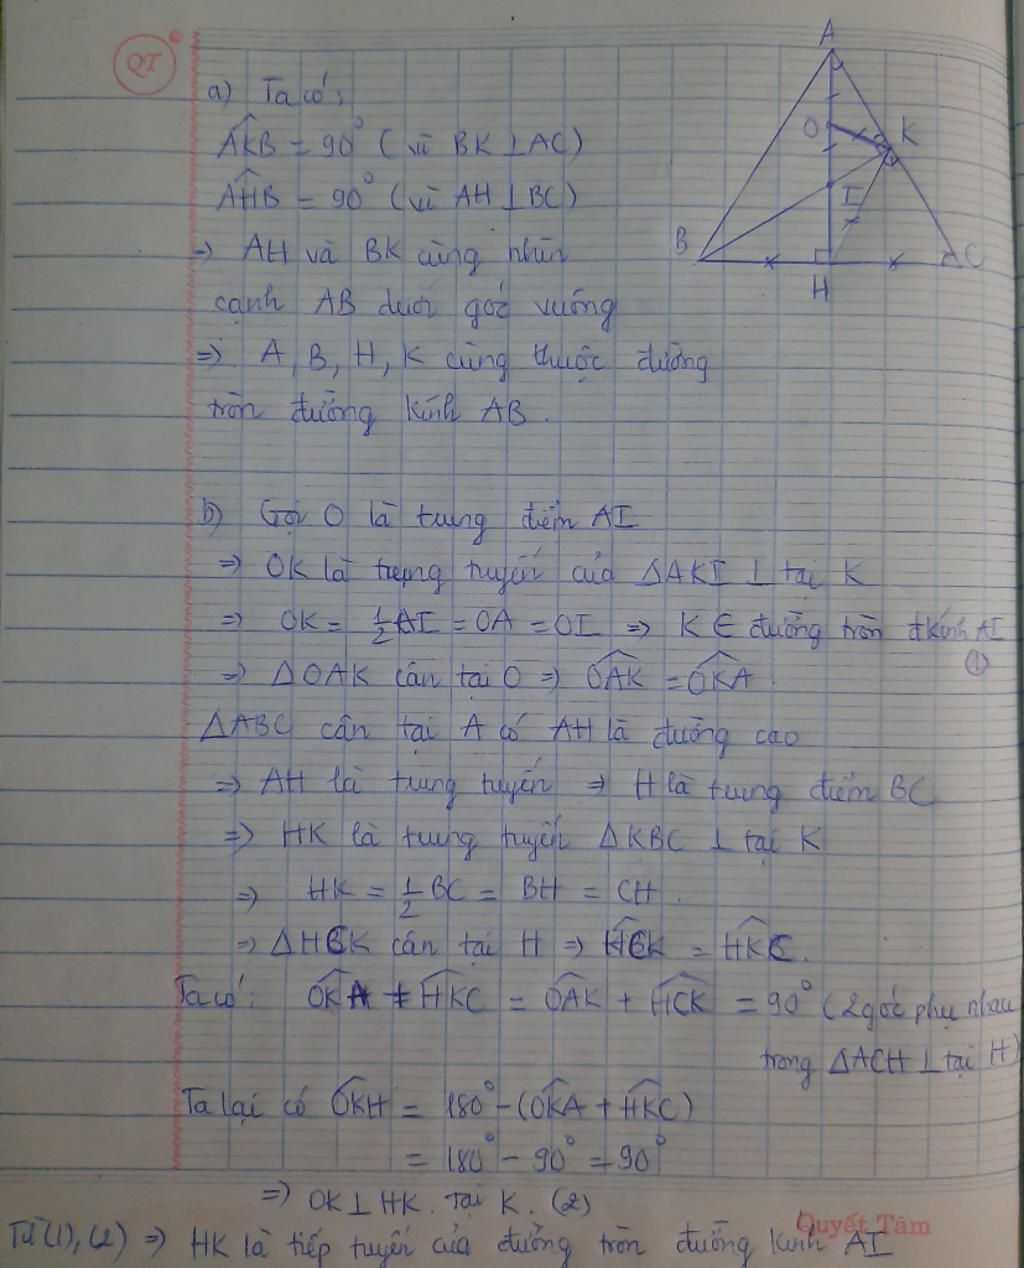 QT
A
O
K
I
B
C
H
a) Ta có:
AKB = 90° (vì BK ⊥ AC)
AHB = 90° (vì AH ⊥ BC)
=> AH và BK cùng nhìn
cạnh AB dưới góc vuông
=> A, B, H, K cùng thuộc đường
tròn đường kính AB.
b) Gọi O là trung điểm AI
=> OK là trung tuyến của ΔAKI ⊥ tại K
=> OK = 1/2 AI = OA = OI => K ∈ đường tròn đkính AI
(1)
=> ΔOAK cân tại O => OAK = OKA
ΔABC cân tại A có AH là đường cao
=> AH là trung tuyến => H là trung điểm BC
=> HK là trung tuyến ΔKBC ⊥ tại K
=> HK = 1/2 BC = BH = CH
=> ΔHCK cân tại H => HCK = HKC.
Ta có: OKA + HKC = OAK + HCK = 90° (2 góc phụ nhau
trong ΔACH ⊥ tại H)
Ta lại có OKH = 180° - (OKA + HKC)
= 180° - 90° = 90°
=> OK ⊥ HK. Tại K. (2)
Quyết Tâm
Từ (1), (2) => HK là tiếp tuyến của đường tròn đường kính AI